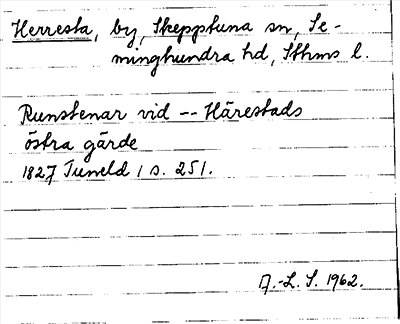 Herresta, by, Skepptuna sn, Se-
minghundra hd, Sthms l.
Runstenar vid -- Härestads
östra gärde
1827 Tuneld 1 s. 251.
A.-L. S. 1962.